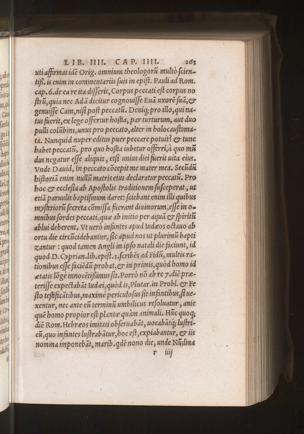 LIB. IIII. CAP. IIII. 263
uti affirmat idē Orig. omnium theologorū multò scien-
tiss. is enim in commentariis suis in epist. Pauli ad Rom.
cap. 6. de ea re ita disserit, Corpus peccati est corpus no
strū, quia nec Adā dicitur cognouisse Euā uxorē suā, &
genuisse Cain, nisi post peccatū. Deniq; pro illo, qui na-
tus fuerit, ex lege offertur hostia, par turturum, aut duo
pulli colūbini, unus pro peccato, alter in holocaustoma-
ta. Nunquid nuper editus puer peccare potuit? & tunc
habet peccatū, pro quo hostia iubetur offerri, à quo mū
dus negatur esse aliquis, etsi unius diei fuerit uita eius.
Vnde Dauid, In peccato cōcepit me mater mea. Secūdū
historiā enim nullū matris eius declaratur peccatū. Pro
hoc & ecclesia ab Apostolis traditionem suscepit, ut
etiā paruulis baptismum daret: sciebant enim illi quibus
mysteriorū secreta cōmissa fuerant diuinorum, esse in o-
mnibus sordes peccati, quæ ab initio per aquā & spiritū
ablui deberent. Vt uerò infantes apud Iudæos octauo ab
ortu die circūcidebantur, sic apud nos ut plurimū bapti
zantur: quod tamen Angli in ipso natali die faciunt, id
quod D. Cyprian. lib. epist. 3. scribēs ad Fidū, multis ra-
tionibus esse faciēdū probat, & in primis, quòd homo id
ætatis lōgè innocētissimus sit. Porrò nō ab re 7. diē præ-
terisse expectabāt Iudæi, quòd is, Plutar. in Probl. & Fe
sto testificātibus, maxime periculosus sit infantibus, si ue-
xentur, nec ante eū terminū umbilicus resoluatur, ante
quē homo propior est plantæ quàm animali. Hūc quoq;
diē Rom. Hebræos imitati obseruabāt, uocabātq; lustri-
cū, quo infantes lustrabātur, hoc est, expiabantur, & iis
nomina imponebāt, marib. qdē nono die, unde Nūdina
r iiij